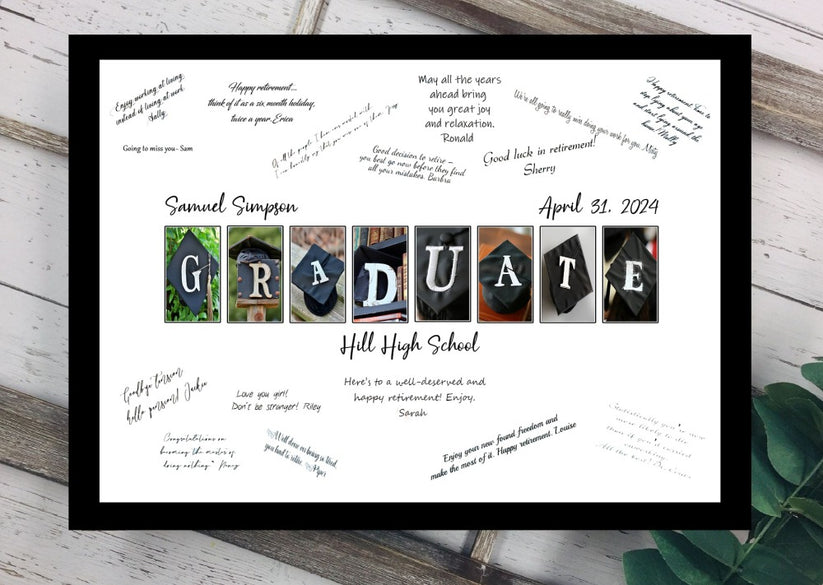 Enjoy working at living,
instead of living at work
Sally.
Happy retirement...
think of it as a six month holiday,
twice a year Erica
May all the years
ahead bring
you great joy
and relaxation.
Ronald
We're all going to really miss doing your work for you. Misty
Happy retirement! Time to
stop lying about your age
and start lying around the
house! Molly
Going to miss you- Sam
Of all the people I know
Good decision to retire –
you best go now before they find
all your mistakes. Barbra
Good luck in retirement!
Sherry
Samuel Simpson
April 31. 2024
GRADUATE
Hill High School
Goodbye tension,
hello pension! Jackie
Love you girl!
Don't be stranger! Riley
Here's to a well-deserved and
happy retirement! Enjoy.
Sarah
Congratulations on
becoming the master of
doing nothing
Well done on being so tired,
you had to retire
Enjoy your new found freedom and
make the most of it. Happy retirement. Louise
Statistically you're now
more likely to die
than if you'd carried
All the best!